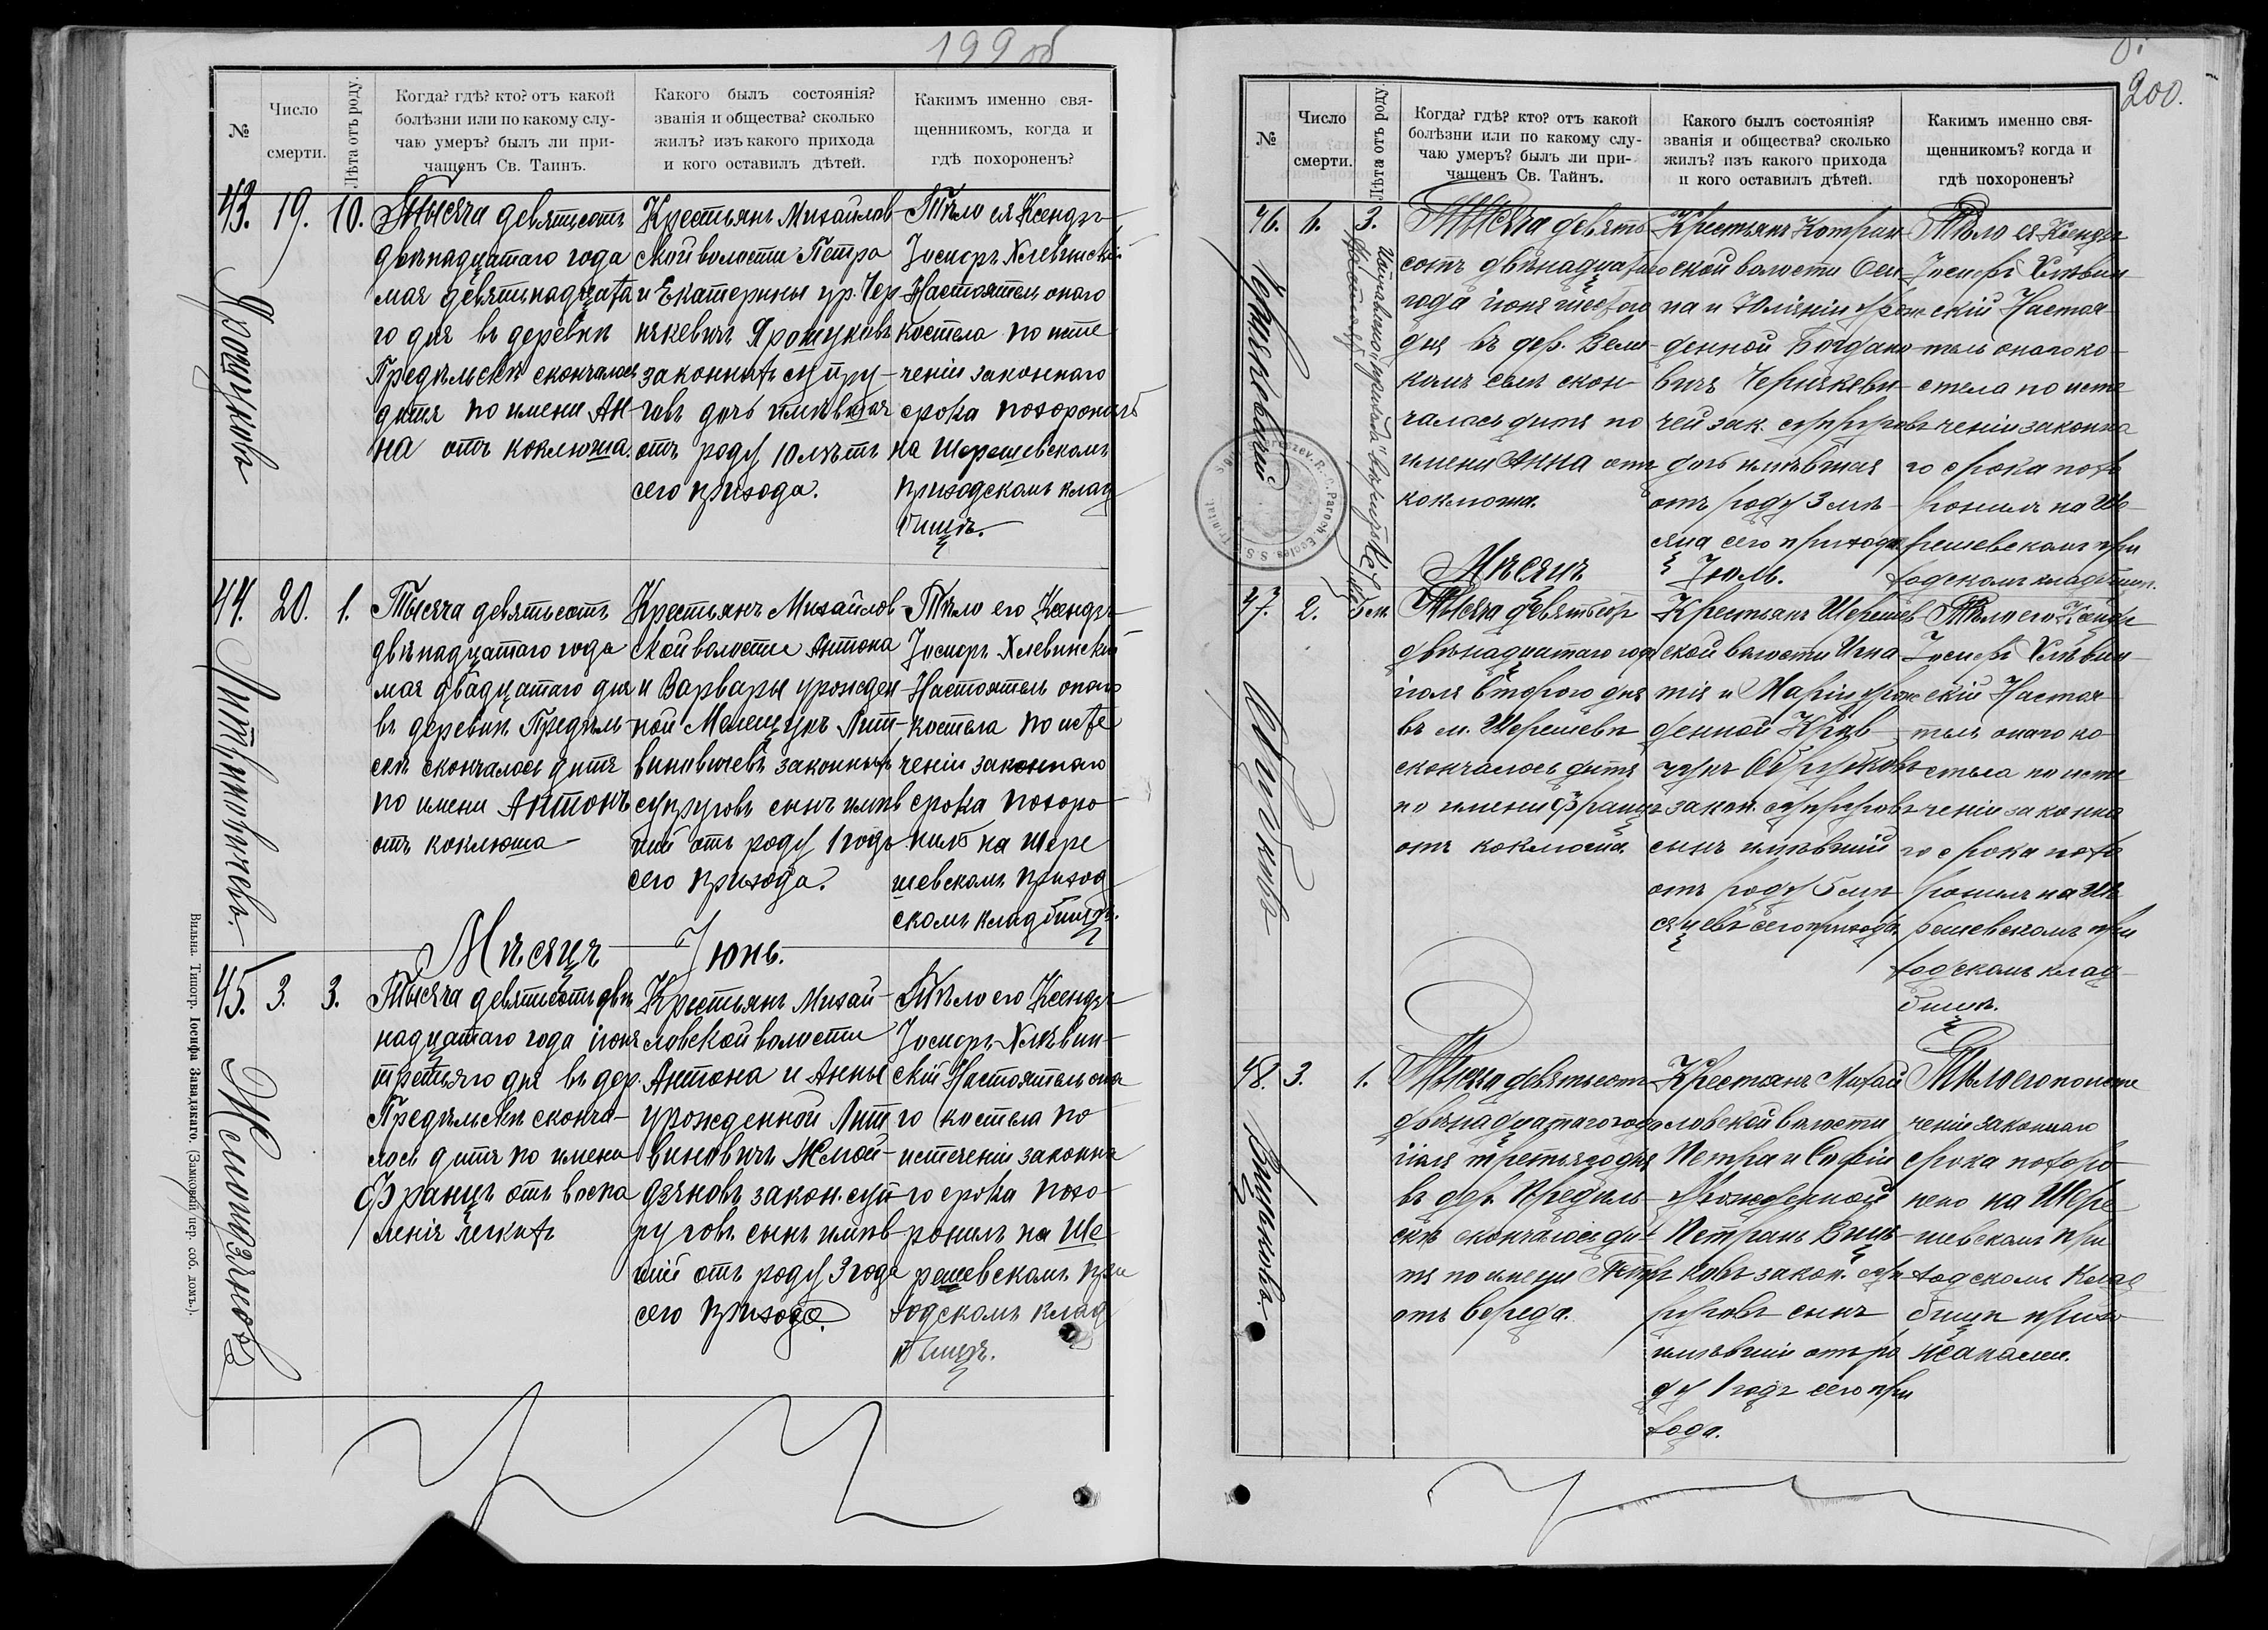 199 об
№
Число
смерти.
Лѣта отъ роду.
Когда? гдѣ? кто? отъ какой
болѣзни или по какому слу-
чаю умеръ? былъ ли при-
чащенъ Св. Таинъ.
Какого былъ состоянія?
званія и общества? сколько
жилъ? изъ какого прихода
и кого оставилъ дѣтей.
Какимъ именно свя-
щенникомъ, когда и
гдѣ похороненъ?
43.
19.
10.
Ярошукъ
Тысяча девятьсотъ
двѣнадцатаго года
мая девятнадцата
го дня въ деревни
Предѣльскѣ скончалось
дитя по имени Ан-
на отъ коклюша.
Крестьянъ Михайлов
ской волости Петра
и Екатерины ур. Чер
някевичъ Ярошуковъ
законныхъ супру-
говъ дочь имѣвшая
отъ роду 10 лѣтъ
сего прихода.
Тѣло ея Ксендзъ
Іосифъ Хлевинскій
Настоятель онаго
костела по исте
ченіи законнаго
срока похоронилъ
на Шерешевскомъ
приходскомъ клад
бищѣ.
44.
20.
1.
Литвиновичъ.
Тысяча девятьсотъ
двѣнадцатаго года
мая двадцатаго дня
въ деревни Предѣль
скѣ скончалось дитя
по имени Антонъ
отъ коклюша
Крестьянъ Михайлов
ской волости Антона
и Варвары урожден
ной Малещукъ Лит-
виновичевъ законныхъ
супруговъ сынъ имѣв
шій отъ роду 1 годъ
сего прихода.
Тѣло его Ксендзъ
Іосифъ Хлевинскій
Настоятель онаго
костела по исте
ченіи законнаго
срока похоро
нилъ на Шере
шевскомъ приход
скомъ кладбищѣ.
Мѣсяцъ Іюнь.
45.
3.
3.
Жмойдзяновъ
Тысяча девятьсотъ двѣ
надцатаго года іюня
третьяго дня въ дер.
Предѣльскѣ сконча-
лось дитя по имени
Францъ отъ воспа
ленія легкихъ
Крестьянъ Михай-
ловской волости
Антона и Анны
урожденной Лит
виновичъ Жмой-
дзяновъ закон. суп-
руговъ сынъ имѣв
шій отъ роду 3 года
сего прихода.
Тѣло его Ксендзъ
Іосифъ Хлѣвин-
скій Настоятель она
го костела по
истеченіи законна
го срока похо-
ронилъ на Ше
решевскомъ при
ходскомъ клад
бищѣ.
Вильна. Типогр. Іосифа Завадзкаго. (Замковый пер. соб. домъ.).
200.
№
Число
смерти.
Лѣта отъ роду.
Когда? гдѣ? кто? отъ какой
болѣзни или по какому слу-
чаю умеръ? былъ ли при-
чащенъ Св. Тайнъ.
Какого былъ состоянія?
званія и общества? сколько
жилъ? изъ какого прихода
и кого оставилъ дѣтей.
Какимъ именно свя-
щенникомъ? когда и
гдѣ похороненъ?
46.
6.
3.
Тысяча девять
сотъ двѣнадцатаго
года іюня шестого
дня въ дер. Вели-
комъ селѣ скон-
чалось дитя по
имени Анна отъ
коклюша.
Крестьянъ Котран
ской волости Оси
па и Юліяніи урож
денной Богдано
вичъ Чернякеви-
чей зак. супруговъ
дочь имѣвшая
отъ роду 3 мѣ-
сяца сего прихода.
Тѣло ея Ксендзъ
Іосифъ Хлѣвин
скій Настоя-
тель онаго ко-
стела по исте
ченіи законна
го срока похо
ронилъ на Ше-
решевскомъ при
ходскомъ кладбищѣ.
Мѣсяцъ Іюль.
47.
2.
5 м.
Тысяча девятьсот
двѣнадцатаго года
іюля второго дня
въ м. Шерешевѣ
скончалось дитя
по имени Францъ
отъ коклюша.
Крестьянъ Шерешев
ской волости Игна
тія и Маріи урож
денной Крав-
чукъ Обрубковъ
закон. супруговъ
сынъ имѣвшій
отъ роду 5 мѣ
сяцевъ сего прихода.
Тѣло его Ксендзъ
Іосифъ Хлѣвин-
скій Настоя-
тель онаго ко
стела по исте
ченіи законна
го срока похо
ронилъ на Ше
решевскомъ при
ходскомъ клад
бищѣ.
48.
3.
1.
Тысяча девятьсотъ
двѣнадцатаго года
іюля третьяго дня
въ дер. Предѣль-
скѣ скончалось ди-
тя по имени Петръ
отъ вереда.
Крестьянъ Михай
ловской волости
Петра и Софіи
урожденной
закон. суп
руговъ сынъ
имѣвшій отъ ро
ду 1 годъ сего при
хода.
Тѣло его по исте
ченіи законнаго
срока похоро
нено на Шере
шевскомъ при
ходскомъ клад
бищѣ прихо
жанами.